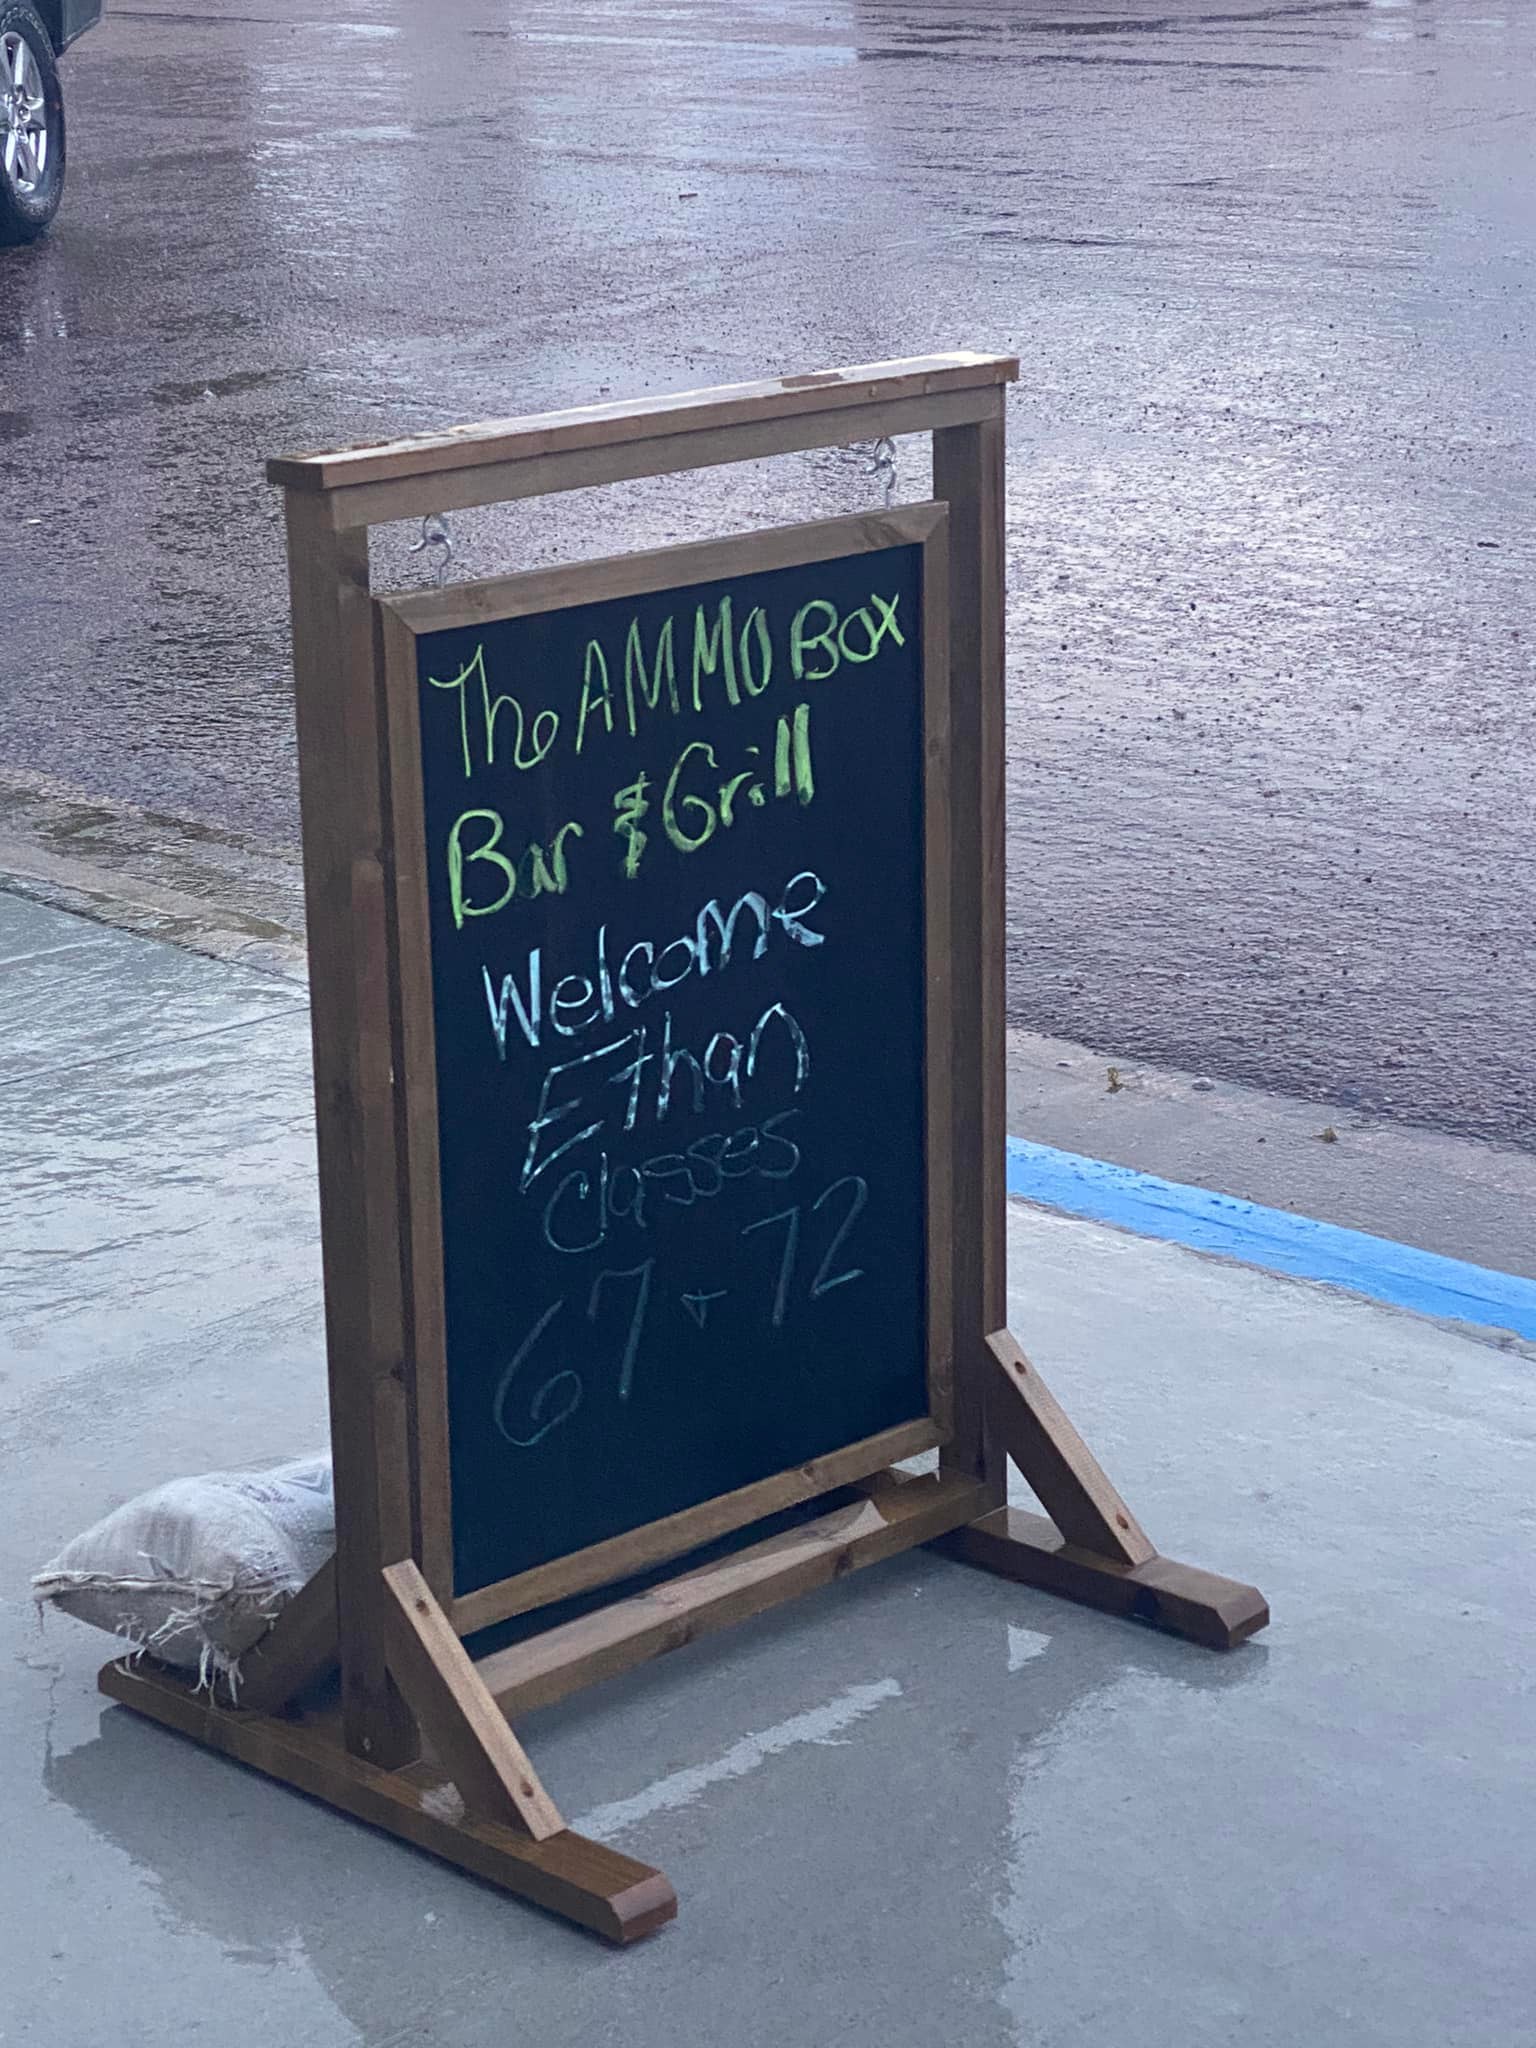 The AMMO Box
Bar & Grill
Welcome
Ethan
Classes
67 + 72